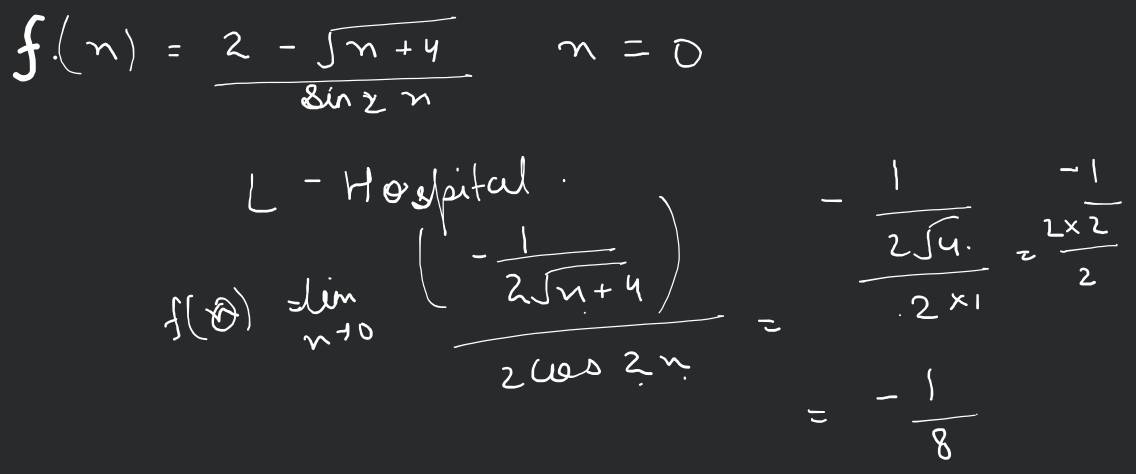 f(n) = (2 - √(n+4)) / (sin 2 n)   n = 0
L - Hospital.
f(0) = lim n→0 (- 1 / (2√(n+4))) / (2 cos 2n) = - (1 / (2√4.)) / (.2×1) = (-1 / (2×2)) / 2
= - 1/8